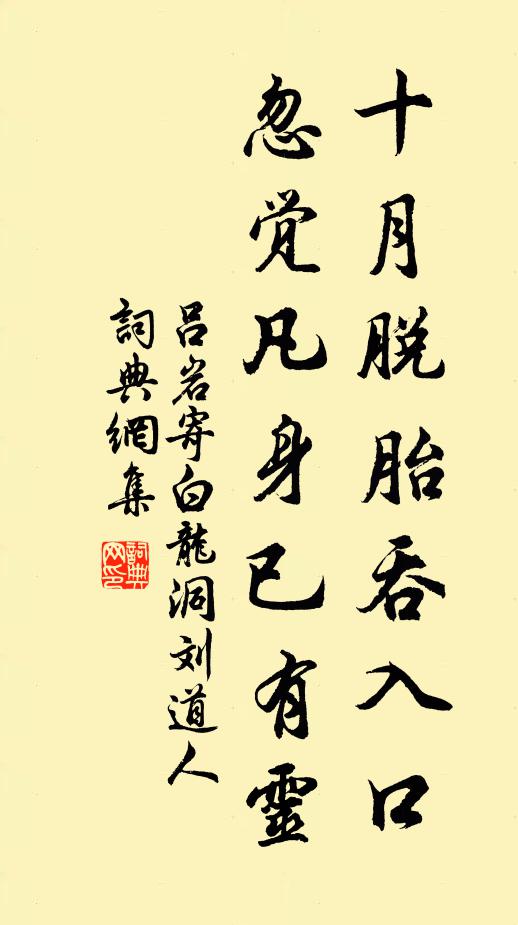 十月脱胎吞入口
忽觉凡身已有靈
吕岩寄白龍洞刘道人
詞典網集
詞典網印